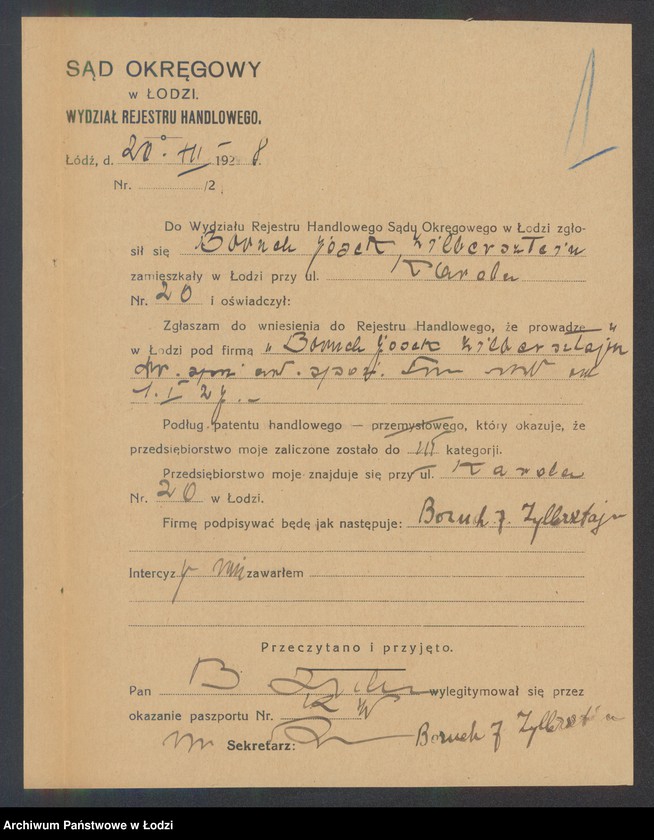 SĄD OKRĘGOWY
w ŁODZI.
WYDZIAŁ REJESTRU HANDLOWEGO.
Łódź, d. 20. XII 1928.
Nr. /2
Do Wydziału Rejestru Handlowego Sądu Okręgowego w Łodzi zgło-
sił się Boruch Josek Zilbersztein
zamieszkały w Łodzi przy ul. Karola
Nr. 20 i oświadczył:
Zgłaszam do wniesienia do Rejestru Handlowego, że prowadzę
w Łodzi pod firmą „Boruch Josek Zilbersztajn"
1. I 27.
Podług patentu handlowego — przemysłowego, który okazuje, że
przedsiębiorstwo moje zaliczone zostało do III kategorji.
Przedsiębiorstwo moje znajduje się przy ul. Karola
Nr. 20 w Łodzi.
Firmę podpisywać będę jak następuje: Boruch J. Zylbersztajn
Intercyzy nie zawarłem
Przeczytano i przyjęto.
Pan B wylegitymował się przez
okazanie paszportu Nr.
Sekretarz: Boruch J Zylbersztajn
Archiwum Państwowe w Łodzi